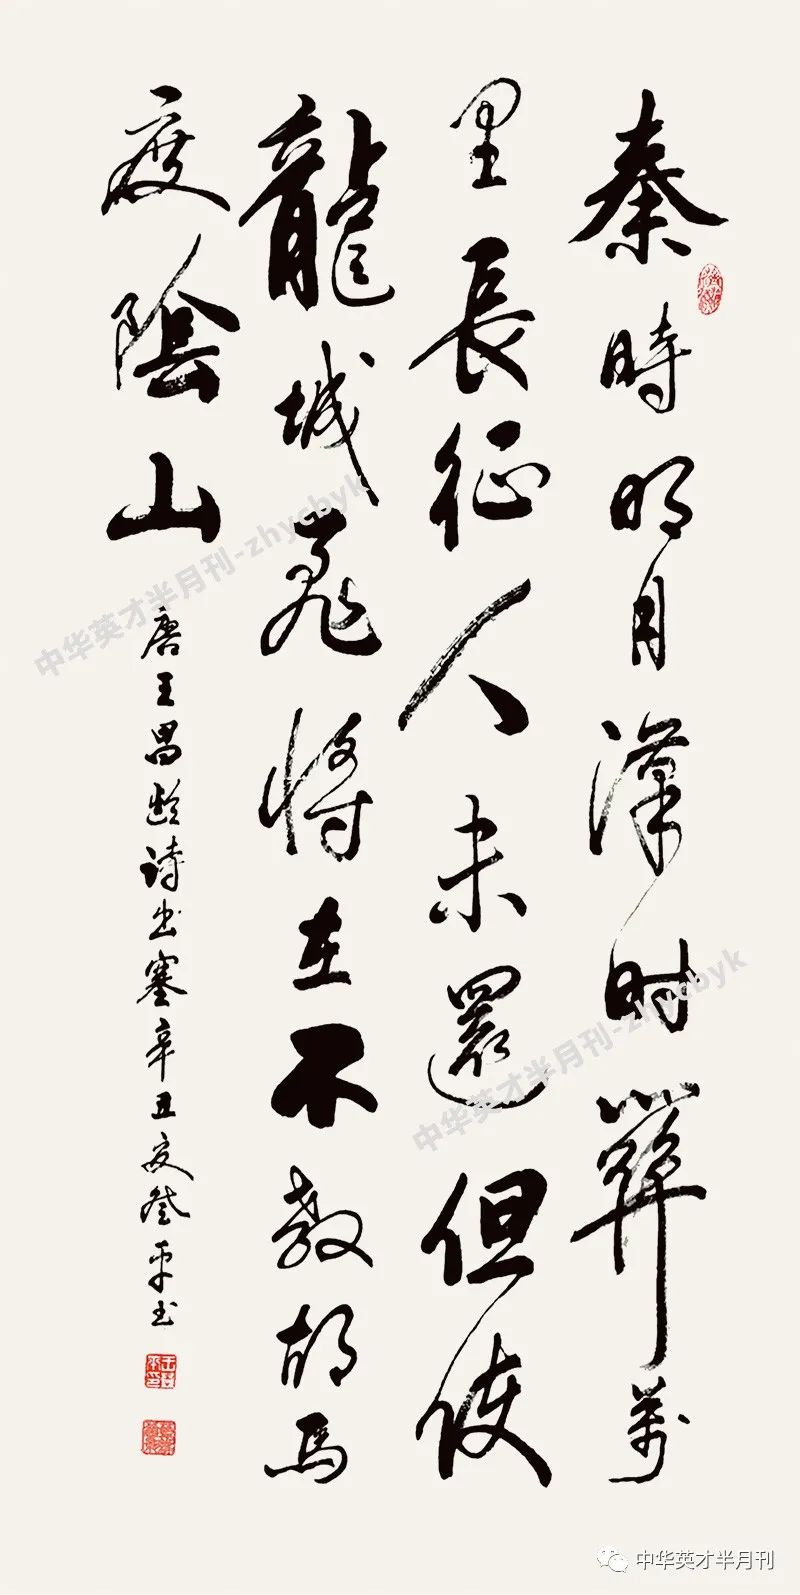 秦時明月漢时關萬
里長征人未還但使
龍城飛将在不教胡馬
度陰山
唐王昌龄诗出塞辛丑夏平书
中华英才半月刊-zhycbyk
中华英才半月刊-zhycbyk
中华英才半月刊